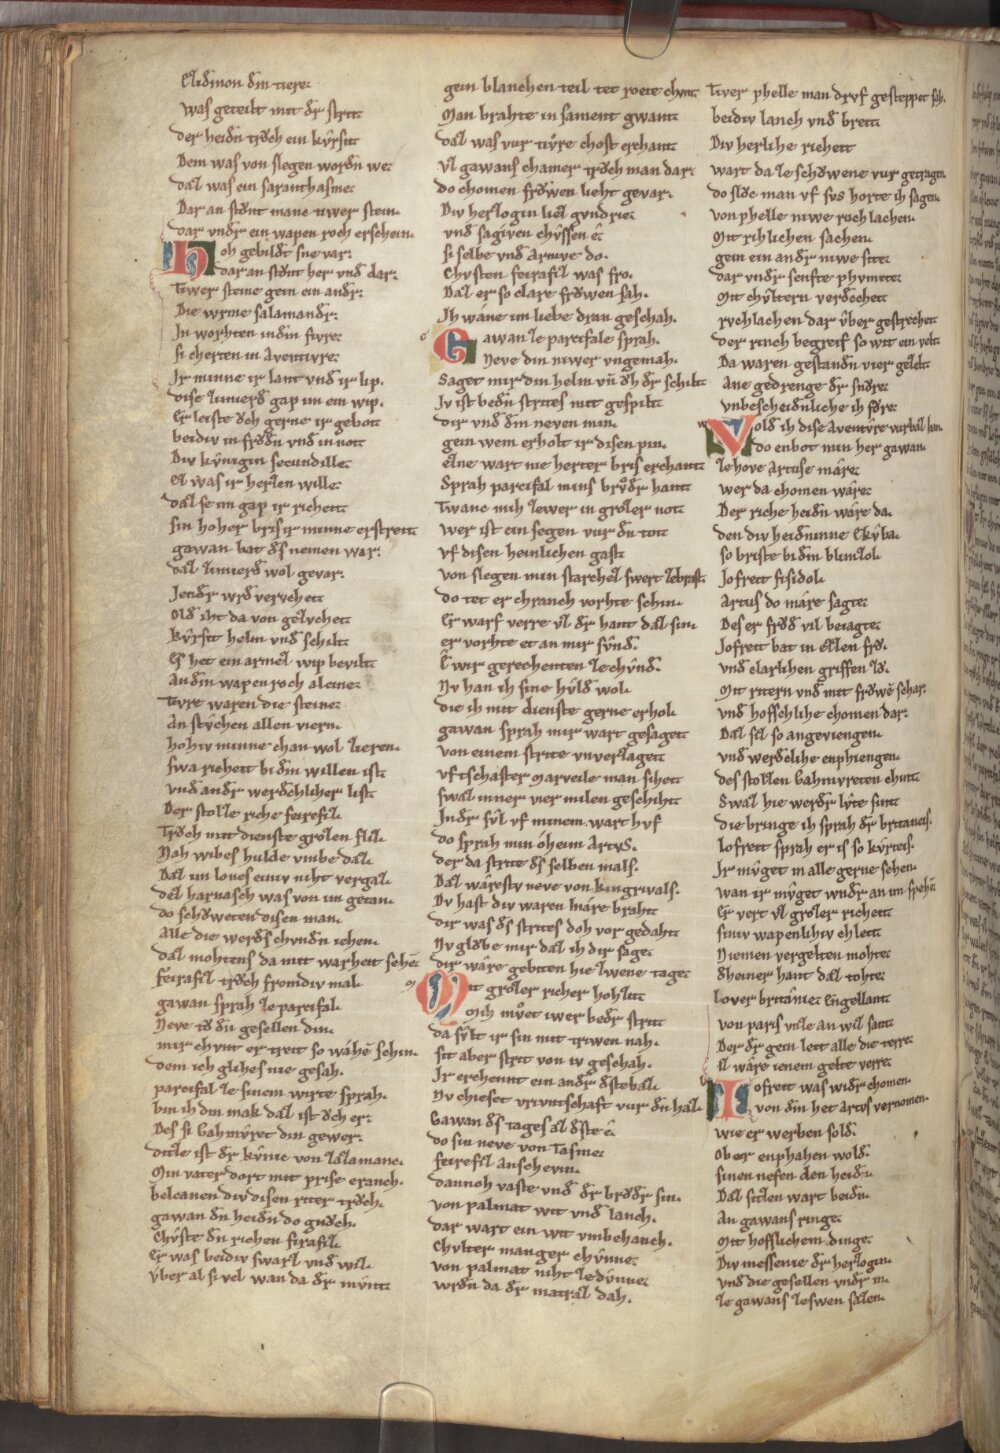 Elidimon dim tiere.
was geteilt mit dr strit.
der heidn trvͦch ein kvrsit
Dem was von slegen wordn we.
daz was ein saranthasme.
Dar an stvͦnt mane tiwer stein.
dar vndr ein wapen roch erschein.
Hoh gebildt sne var.
dar an stvͦnt her vnd dar.
Tiwer steine gein ein andr.
Die wrme salamandr.
In worhten in dim fivre.
si cherten in Aventivre.
Ir minne ir lant vnd ir lip.
dise zimierd gap im ein wip.
Er leiste ovch gerne ir gebot
beidiv in frovdn vnd in not
Div kvnigin secundille.
ez was ir herzen wille.
daz se im gap ir richeit
sin hoher bris ir minne erstreit.
gawan bat ds nemen war.
daz zimierd wol gevar.
Iendr wrd verrvchet
Old iht da von gelvchet
kvrsit helm vnd schilt.
Es het ein armez wip bevilt.
an dim wapen roch aleine.
Tivre waren die steine.
an stvchen allen viern.
hohiv minne chan wol zieren.
swa richeit bi dim willen ist.
vnd andr werdechlicher list.
Der stolze riche feirefiz.
Trvͦch mit dienste grozen fliz.
Nah wibes hulde vmbe daz.
Daz im lones einiv niht vergaz.
dez harnasch was von im getan.
do schovweten disen man.
alle die werds chvndn iehen.
daz mohten da mit warheit sehen
feirafiz trvͦch fromdiv mal.
gawan sprah ze parcifal.
Neve tvͦ dn gesellen din.
mir chvnt er treit so wæhen schin.
dem ich gliches nie gesah.
parcifal ze sinem wirte sprah.
bin ih din mak daz ist ovch er.
Des si Gahmvret din gewer.
ditze ist dr kvnic von zazamanc.
Min vater dort mit prise eranch.
belcanen div disen riter trvͦch.
gawan dn heidn do gnvͦch.
Chvste dn richen firafiz.
Er was beidiv swarz vnd wiz.
vber al si vel wan da dr mvnt
gein blanchen teil tet roete chvnt.
Man brahte in sament gwant
daz was vur tivre chost erchant.
vz gawans chamer trvͦch man dar.
do chomen frovwen lieht gevar.
Div herzogin liez gvndrie.
vnd sagiven chvssen e.
si selbe vnd Arnive do.
Chvsten feirafiz was fro.
Daz er so clare frovwen sah.
Ih wæne im liebe dran geschah.
Gawan ze parcifale sprah.
Neve din niwer vngemah.
Saget mir din helm vn ovh dr schilt.
Iv ist bedn strites mit gespilt.
dir vnd dim neven min.
gein wem erholt ir disen pin.
ezne wart nie herter bris erchant.
Sprah parcifal mins brvͦdr hant
Twanc mih zewer in grozer not.
wer ist ein segen vur dn tot.
vf disen heinlichen gast.
von slegen min starchez swert zebrast.
do tet er chranch vorhte schin.
Er warf verre vz dr hant daz sin.
er vorhte et an mir svnd.
E wir gerechenten ze chvnd.
Nv han ih sine hvld wol.
die ih mit dienste gerne erhol.
gawan sprah mir wart gesaget
von einem strite vnverzaget.
vf tschaster Marveile man sihet
swaz inner vier milen geschiht.
In dr svl vf minem wart hvs.
do sprah min oheim Artvs.
der da strite ds selben mals.
Daz wæresty neve von kingrivals.
Dv hast div waren mære braht.
dir was ds strites doh vor gedaht.
Nv glovbe mir daz ih dir sage.
dir wære gebiten hie zwene tage.
Mit grozer richer hohzit.
Mih mvͦet iwer bedr strit.
da svlt ir sin mit triwen nah.
sit aber strit von iv geschah.
Ir erchennt ein andr dste baz.
Nv chieset vrivntschaft vur dn haz.
Gawan ds tages az dste e.
do sin neve von Tasme.
feirefiz anschevin.
dannoh vaste vnd dr brvͦdr sin.
von palmat wit vnd lanch.
dar wart ein wit vmbehanch.
chvlter manger chvnne.
von palmat niht ze dvnne.
wrdn da dr matraz dah.
Tiver phelle man drvf gesteppet sah.
beidiv lanch vnd breit.
Div herliche richeit
wart da ze schovwene vur getragen
do sloc man vf svs horte ih sagen.
von phelle niwe ruch lachen.
Mit rihlichen sachen.
gein ein andr niwe site.
dar vndr senfte phvmite.
Mit chvltern verdechet
rvchlachen dar vber gestrechet
der rinch begreif so wit ein velt
Da waren gestandn vier gezelt.
Ane gedrenge dr snvͦre.
vnbescheidnliche ih fvͦre.
Wold ih dise Aventvre virbaz lan.
do enbot min her gawan.
ze hove Artuse mære.
wer da chomen wære.
Der riche heidn wære da.
den div heidninne Ekvba.
so briste bi dim blimizol.
Iofreit fisidol.
Artus do mære sagte.
Des er frovd vil beiagte.
Iofreit bat in ezzen frvͦ.
vnd clarlihen griffen zvͦ.
Mit ritern vnd mit frovwen schar.
vnd hofschlihe chomen dar.
Daz siz so angeviengen.
vnd werdeclihe enphiengen.
des stolzen Gahmvreten chint.
Swaz hie werdr lvte sint
die bringe ih sprah dr britaneis.
Iofreit sprah er is so kvrteis.
Ir mvget in alle gerne sehen.
wan ir mvget wndr an im spehen
Er vert vz grozer richeit
siniv wapenlihiv chleit
Niemen vergelten mohte.
Sheiner hant daz tohte.
Lover britanie. Engellant.
von paris vnze an wizsant.
Der dr gein leit alle die terre.
ez wære ienem gelte verre.
Iofreit was widr chomen.
von din het artus vernomen.
wie er werben sold.
ob er enphahen wold.
sinen nefen den heidn.
Daz sitzen wart beidn.
An gawans ringe.
Mit hofslichem dinge.
Div messenie dr herzogin.
vnd die gesellen vndr in.
ze gawans zeswen sazen.